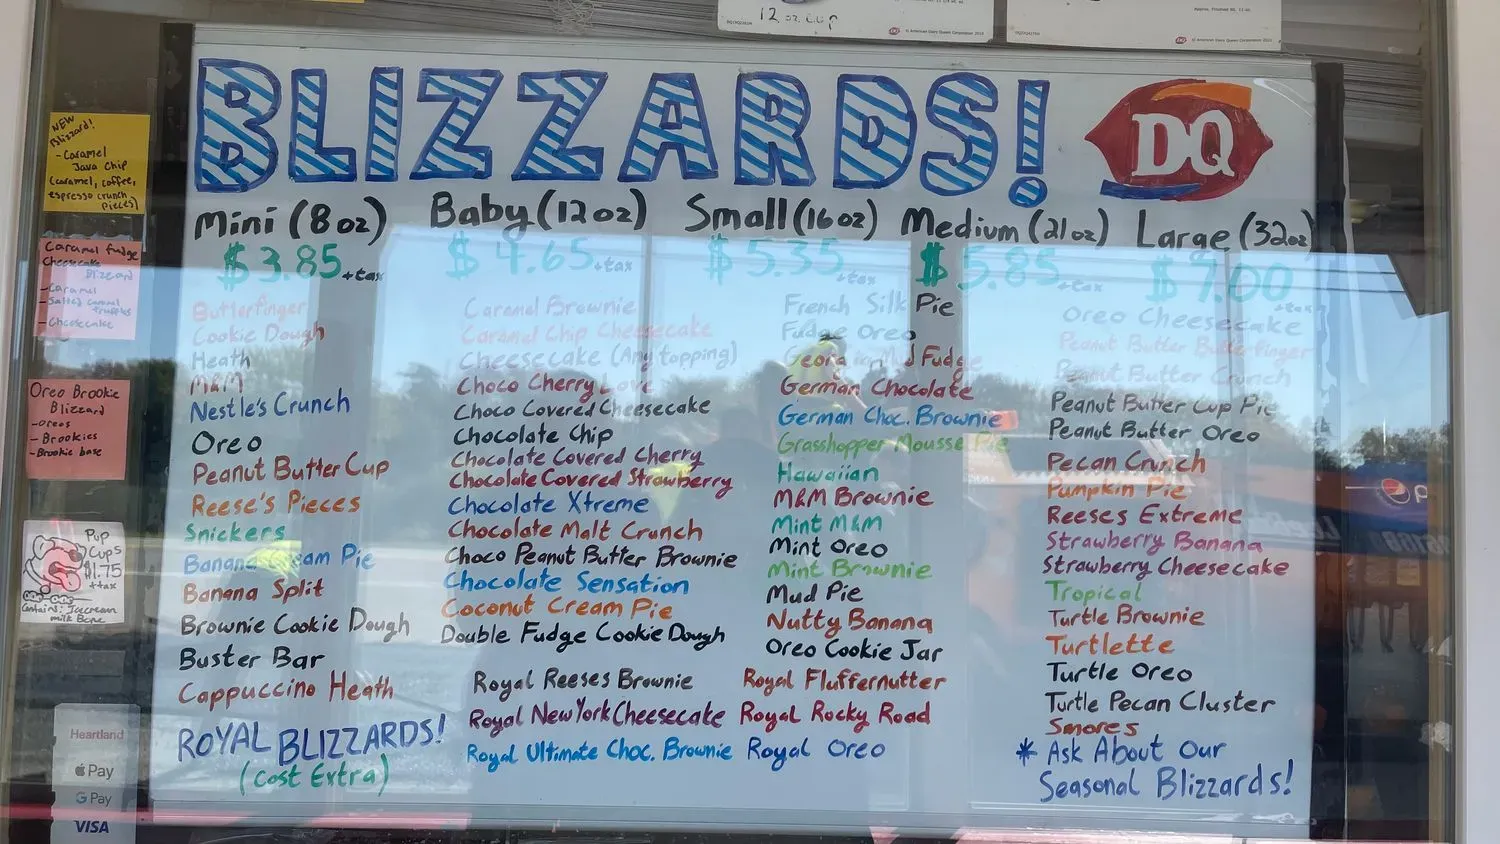 12 oz. cup
© American Dairy Queen Corporation
© American Dairy Queen Corporation
BLIZZARDS!
DQ
Mini (8oz) Baby (12oz) Small (16oz) Medium (21oz) Large (32oz)
$3.85 +tax $4.65 +tax $5.35 +tax $5.85 +tax $7.00 +tax
Butterfinger
Cookie Dough
Heath
M&M
Nestle's Crunch
Oreo
Peanut Butter Cup
Reese's Pieces
Snickers
Banana Cream Pie
Banana Split
Brownie Cookie Dough
Buster Bar
Cappuccino Heath
Caramel Brownie
Caramel Chip Cheesecake
Cheesecake (Any topping)
Choco Cherry Love
Choco Covered Cheesecake
Chocolate Chip
Chocolate Covered Cherry
Chocolate Covered Strawberry
Chocolate Xtreme
Chocolate Malt Crunch
Choco Peanut Butter Brownie
Chocolate Sensation
Coconut Cream Pie
Double Fudge Cookie Dough
French Silk Pie
Fudge Oreo
Mud Fudge
German Chocolate
German Choc. Brownie
Grasshopper Mousse Pie
Hawaiian
M&M Brownie
Mint M&M
Mint Oreo
Mint Brownie
Mud Pie
Nutty Banana
Oreo Cookie Jar
Oreo Cheesecake
Peanut Butter Butterfinger
Peanut Butter Crunch
Peanut Butter Cup Pie
Peanut Butter Oreo
Pecan Crunch
Pumpkin Pie
Reeses Extreme
Strawberry Banana
Strawberry Cheesecake
Tropical
Turtle Brownie
Turtlette
Turtle Oreo
Turtle Pecan Cluster
Smores
* Ask About Our
Seasonal Blizzards!
ROYAL BLIZZARDS!
(Cost Extra)
Royal Reeses Brownie
Royal New York Cheesecake
Royal Ultimate Choc. Brownie
Royal Fluffernutter
Royal Rocky Road
Royal Oreo
NEW
Blizzard!
- Caramel
Java Chip
(caramel, coffee,
espresso crunch
pieces)
Caramel Fudge
Cheesecake
Blizzard
- Caramel
- Salted caramel
truffles
- Cheesecake
Oreo Brookie
Blizzard
- oreos
- Brookies
- Brookie base
Pup
Cups
$1.75
+tax
Contains: Icecream
milk Bone
Heartland
Pay
G Pay
VISA